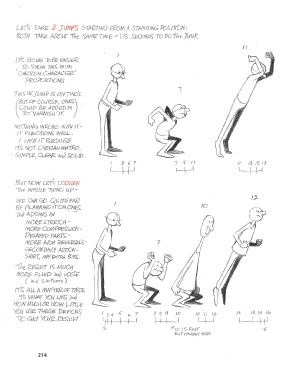 LET'S TAKE 2 JUMPS STARTING FROM A STANDING POSITION:
BOTH TAKE ABOUT THE SAME TIME – 1⅓ SECONDS TO DO THE JUMP.
IT'S GOING TO BE EASIER
TO SHOW THIS WITH
'CARTOON CHARACTER'
PROPORTIONS
THIS JUMP IS ON TWO'S
BUT OF COURSE, ONES
COULD BE ADDED IN
TO 'VARNISH' IT.
NOTHING WRONG WITH IT –
IT FUNCTIONS WELL.
I LIKE IT BECAUSE
IT'S NOT OVERANIMATED.
SIMPLE, CLEAR and SOLID
1
7
11
1 3 5 7
7 9 11
11 13 15
BUT NOW LET'S LOOSEN
THE WHOLE THING UP –
WE CAN GO QUITE FAR
BY PLANNING IT ON ONES
and ADDING IN
MORE STRETCH –
MORE COMPRESSION –
DELAYED PARTS –
MORE ARM REVERSALS –
SECONDARY ACTION –
SHIRT, AN EXTRA BITS.
THE RESULT IS MUCH
MORE FLUID and LOOSE
(and CARTOONY)
IT'S ALL A MATTER OF TASTE
IT'S WHAT YOU LIKE and
HOW MUCH OR HOW LITTLE
YOU USE THESE DEVICES
TO GET YOUR RESULT
1
7
10
12
7 8 9 10
10 11 12
214